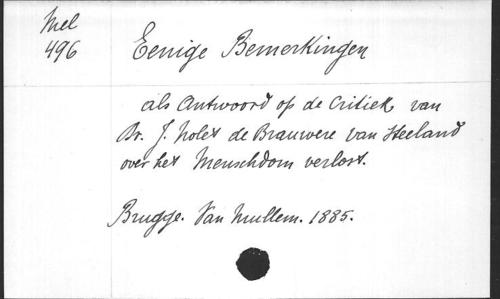 Mel
496
Eenige Bemerkingen
als Antwoord op de Critiek van
Dr. J. Nolet de Brauwere van Steeland
over het Menschdom verlost.
Brugge. Van Mullem. 1885.